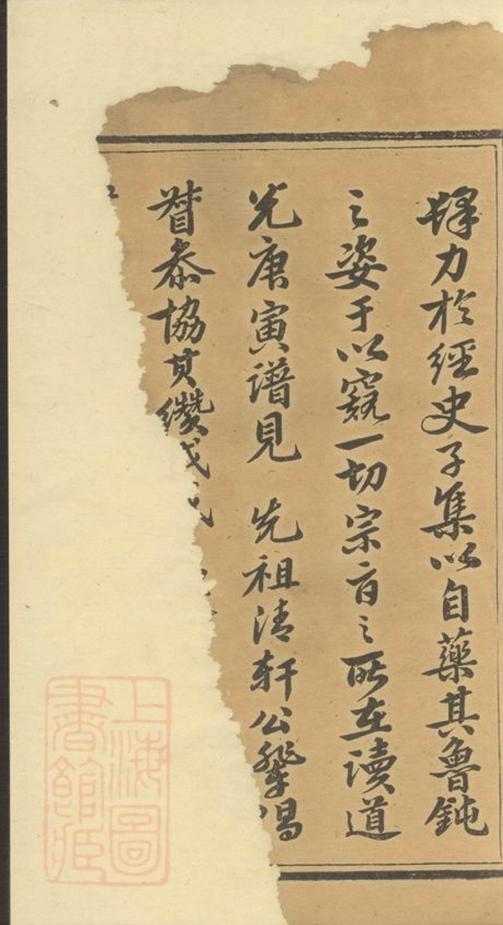 殫力於經史子集以自藥其魯鈍
之姿于以窺一切宗旨之所在讀道
光庚寅譜見 先祖清軒公肇唱
督叅協其纘
上海圖
書館藏